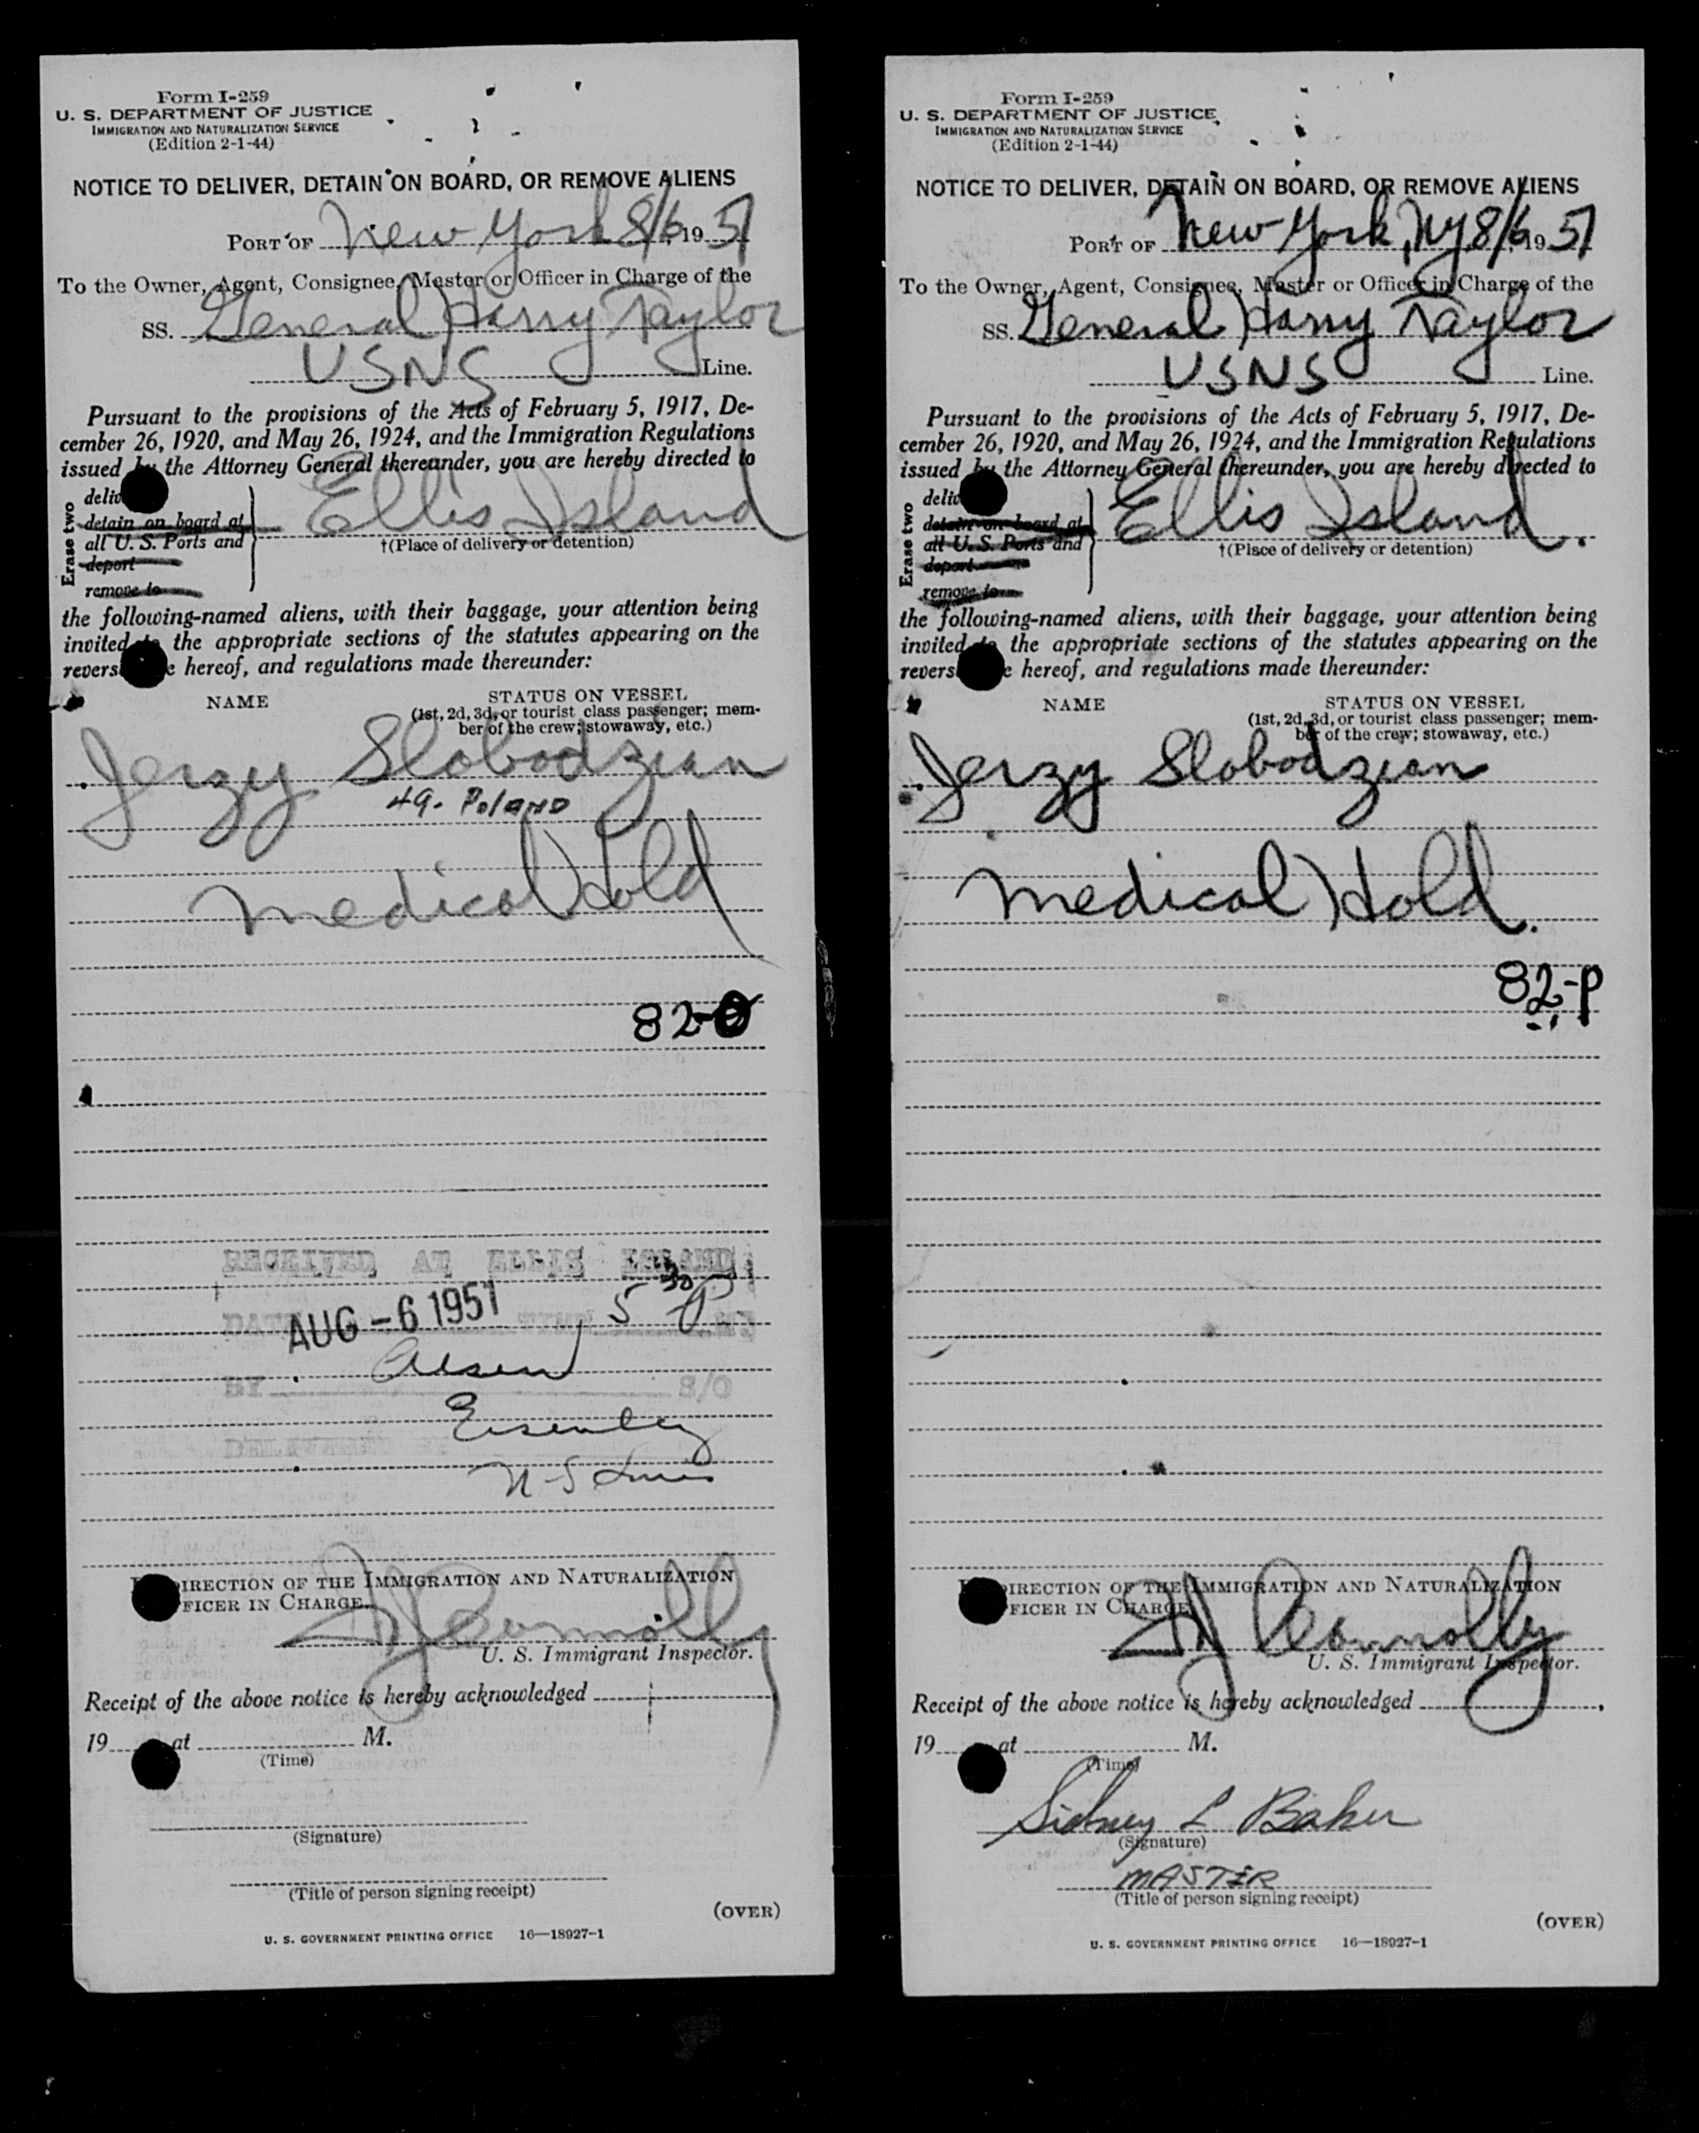 Form I-259
U. S. DEPARTMENT OF JUSTICE
IMMIGRATION AND NATURALIZATION SERVICE
(Edition 2-1-44)
NOTICE TO DELIVER, DETAIN ON BOARD, OR REMOVE ALIENS
PORT OF New York 8/6, 19 51
To the Owner, Agent, Consignee, Master or Officer in Charge of the
SS. General Harry Taylor
USNS Line.
Pursuant to the provisions of the Acts of February 5, 1917, De-
cember 26, 1920, and May 26, 1924, and the Immigration Regulations
issued by the Attorney General thereunder, you are hereby directed to
Erase two
deliv
detain on board at
all U. S. Ports and
deport
remove to
Ellis Island
†(Place of delivery or detention)
the following-named aliens, with their baggage, your attention being
invited to the appropriate sections of the statutes appearing on the
revers e hereof, and regulations made thereunder:
NAME STATUS ON VESSEL
(1st, 2d, 3d, or tourist class passenger; mem-
ber of the crew; stowaway, etc.)
Jerzy Slobodzian
49. Poland
Medical Hold
82-O
RECEIVED AT ELLIS ISLAND
DATE AUG - 6 1951 TIME 5 30 P
BY S/O
IRECTION OF THE IMMIGRATION AND NATURALIZATION
FICER IN CHARGE.
Connolly
U. S. Immigrant Inspector.
Receipt of the above notice is hereby acknowledged
19 at M.
(Time)
(Signature)
(Title of person signing receipt)
(OVER)
U. S. GOVERNMENT PRINTING OFFICE 16—18927-1
Form I-259
U. S. DEPARTMENT OF JUSTICE
IMMIGRATION AND NATURALIZATION SERVICE
(Edition 2-1-44)
NOTICE TO DELIVER, DETAIN ON BOARD, OR REMOVE ALIENS
PORT OF New York, NY 8/6 19 51
To the Owner, Agent, Consignee, Master or Officer in Charge of the
SS. General Harry Taylor
USNS Line.
Pursuant to the provisions of the Acts of February 5, 1917, De-
cember 26, 1920, and May 26, 1924, and the Immigration Regulations
issued by the Attorney General thereunder, you are hereby directed to
Erase two
deliv
detain on board at
all U. S. Ports and
deport
remove to
Ellis Island.
†(Place of delivery or detention)
the following-named aliens, with their baggage, your attention being
invited to the appropriate sections of the statutes appearing on the
revers e hereof, and regulations made thereunder:
NAME STATUS ON VESSEL
(1st, 2d, 3d, or tourist class passenger; mem-
ber of the crew; stowaway, etc.)
Jerzy Slobodzian
Medical Hold.
82-P
IRECTION OF THE IMMIGRATION AND NATURALIZATION
FICER IN CHARGE
Connolly
U. S. Immigrant Inspector.
Receipt of the above notice is hereby acknowledged ,
19 at M.
(Time)
Sidney L Baker
(Signature)
MASTER
(Title of person signing receipt)
(OVER)
U. S. GOVERNMENT PRINTING OFFICE 16—18927-1